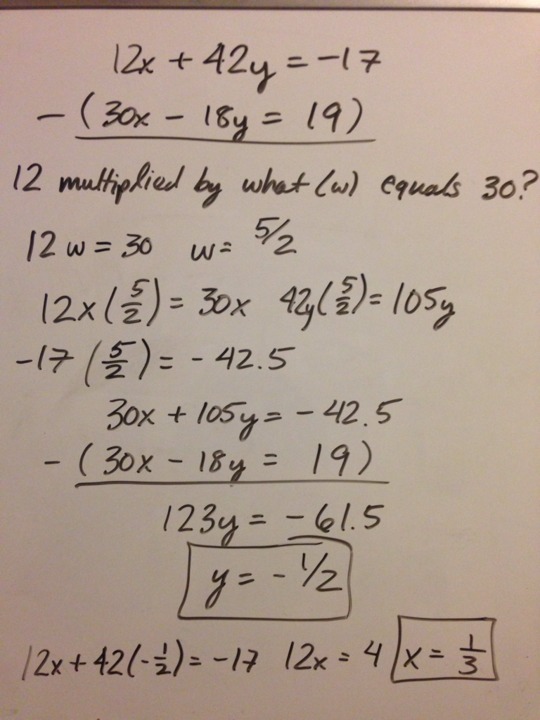 12x + 42y = -17
- (30x - 18y = 19)
12 multiplied by what (w) equals 30?
12w = 30 w = 5/2
12x(5/2) = 30x 42y(5/2) = 105y
-17(5/2) = -42.5
30x + 105y = -42.5
- (30x - 18y = 19)
123y = -61.5
y = -1/2
12x + 42(-1/2) = -17 12x = 4 x = 1/3